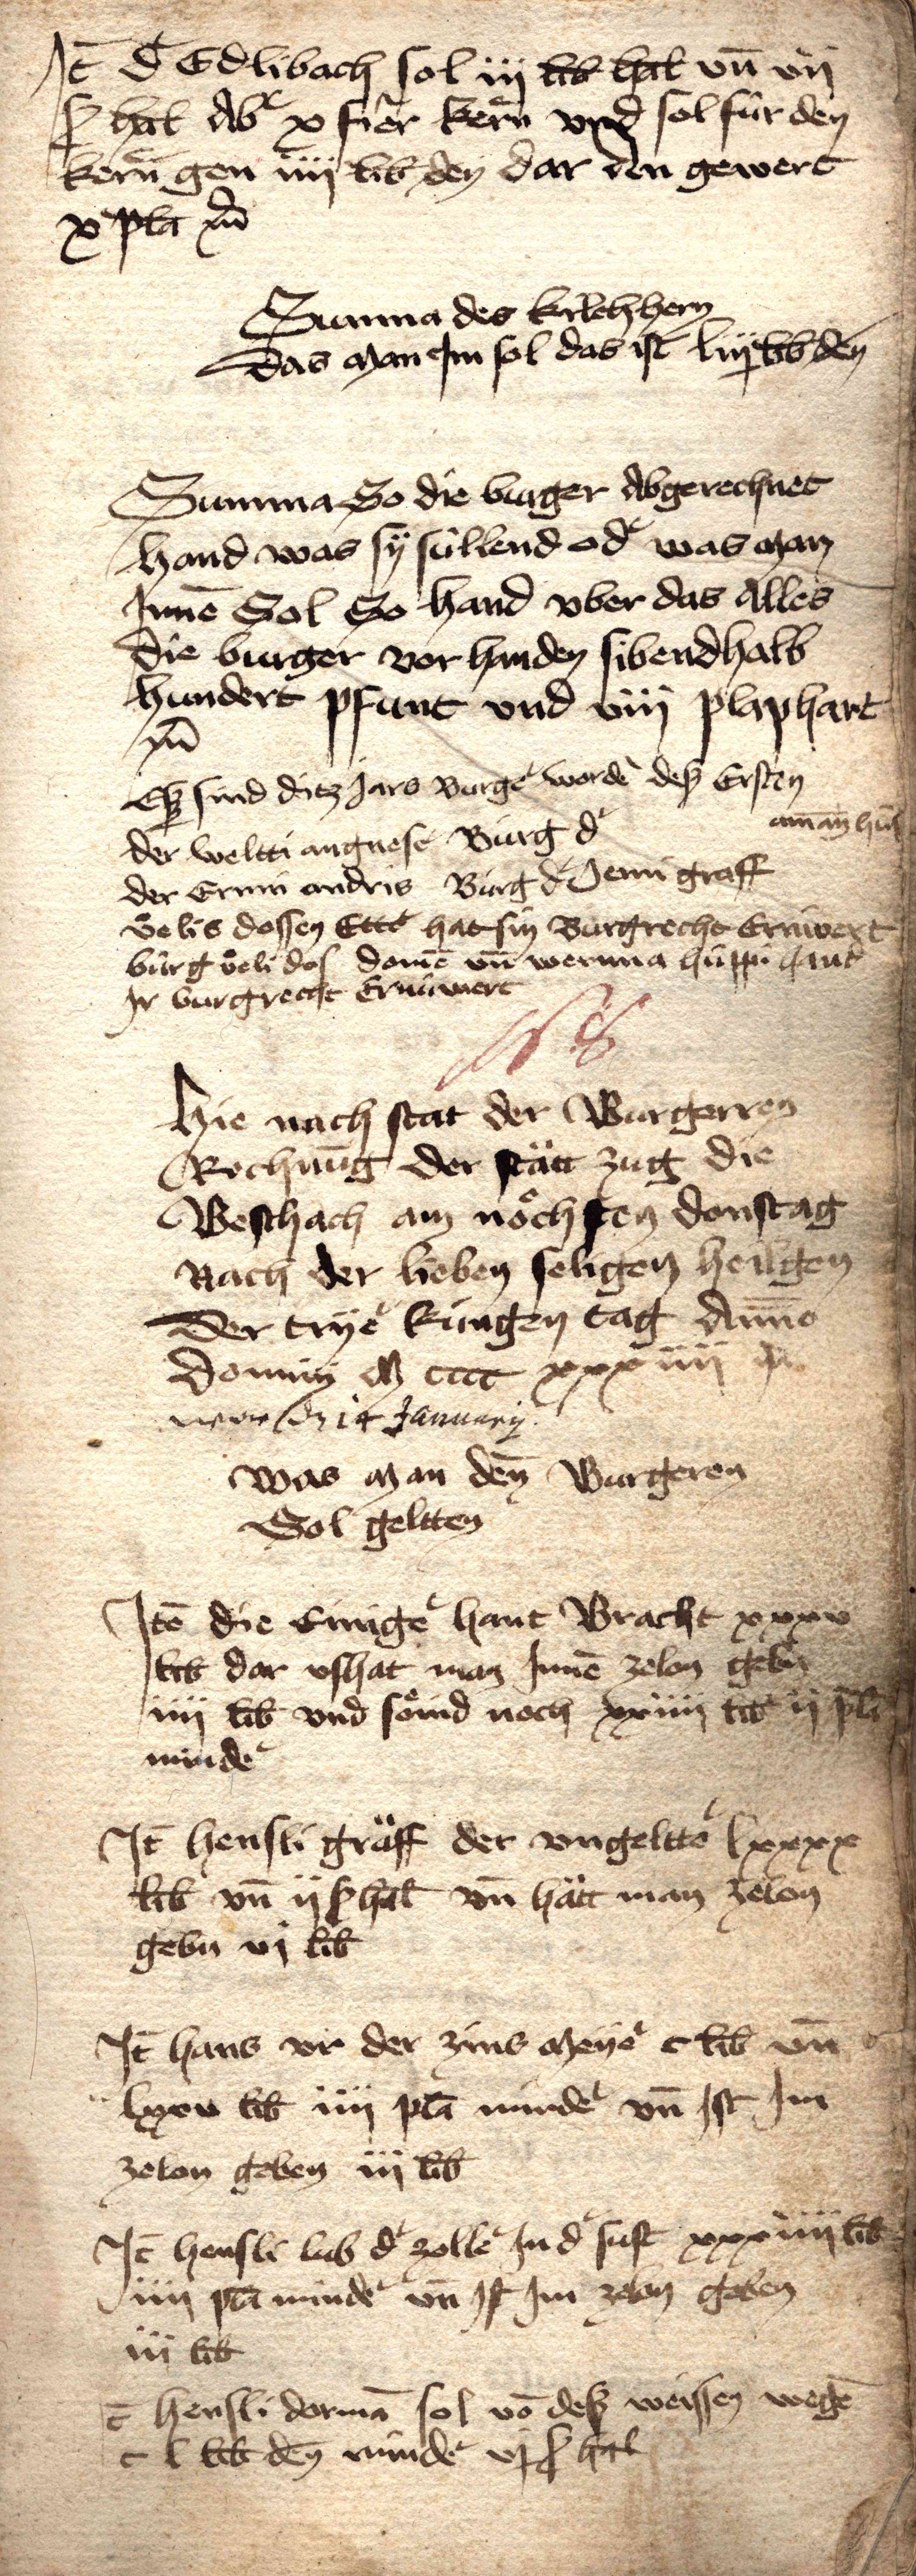 It̄ d͛ Edlibach sol iij lib hal vn̄ vij
ß hal Ab͛ x fier kern̄ vnd sol für den
kern̄ gen iiij lib den dar an gewert
x pla m̄
Summa des kilchhern
das man Im sol das ist liij lib den
Summa So die burger Abgerechnet
hand was sÿ süllend od͛ was man
Innē Sol So hand vber das Alles
die burger vor handen sibendhalb
hundert pfunt vnd viij plaphart
m̄
Eß sind ditz Jars burg͛ wordē deß Ersten
der weltti angnest Burg d͛ aman hüs
der Erni andris Burg d͛ Jenni graff
hat sin Burgrecht Ernüwert
bürg vͦeli vn̄ wernna hüppi hand
Ir burgrecht Ernüwert
Hie nach stat der Burgerren
Rechnūg der stätt zug die
Beschach am nöchsten donstag
Nach der lieben seligen heilgen
Der trÿe͛ küngen tag Anno
Domini M cccc xxxiiii
14 January.
Was man den̄ Burgeren
Sol geltten
Itē die Einige͛ hant Bracht xxxv
lib dar vshat man Innē zelon gebn̄
iiij lib vnd söind noch xxiiii lib ij pla
minde͛
It̄ hensli gräff der vngeltte͛ lxxxx
lib vn̄ ij ß hal vn̄ hätt man zelon
gebn vj lib
It̄ hans vr der zins meÿe͛ c lib vn̄
lxxv lib iiij pla minde͛ vn̄ Ist Im
zelon geben iij lib
It̄ hensli lub d͛ zolle͛ In d͛ sust xxxiiii lib
iiij pla minde͛ vn̄ Ist Im zelon geben
iij lib
t̄ hensli dormā sol vō deß weissen wegē
c l lib den̄ minde͛ vj ß hal